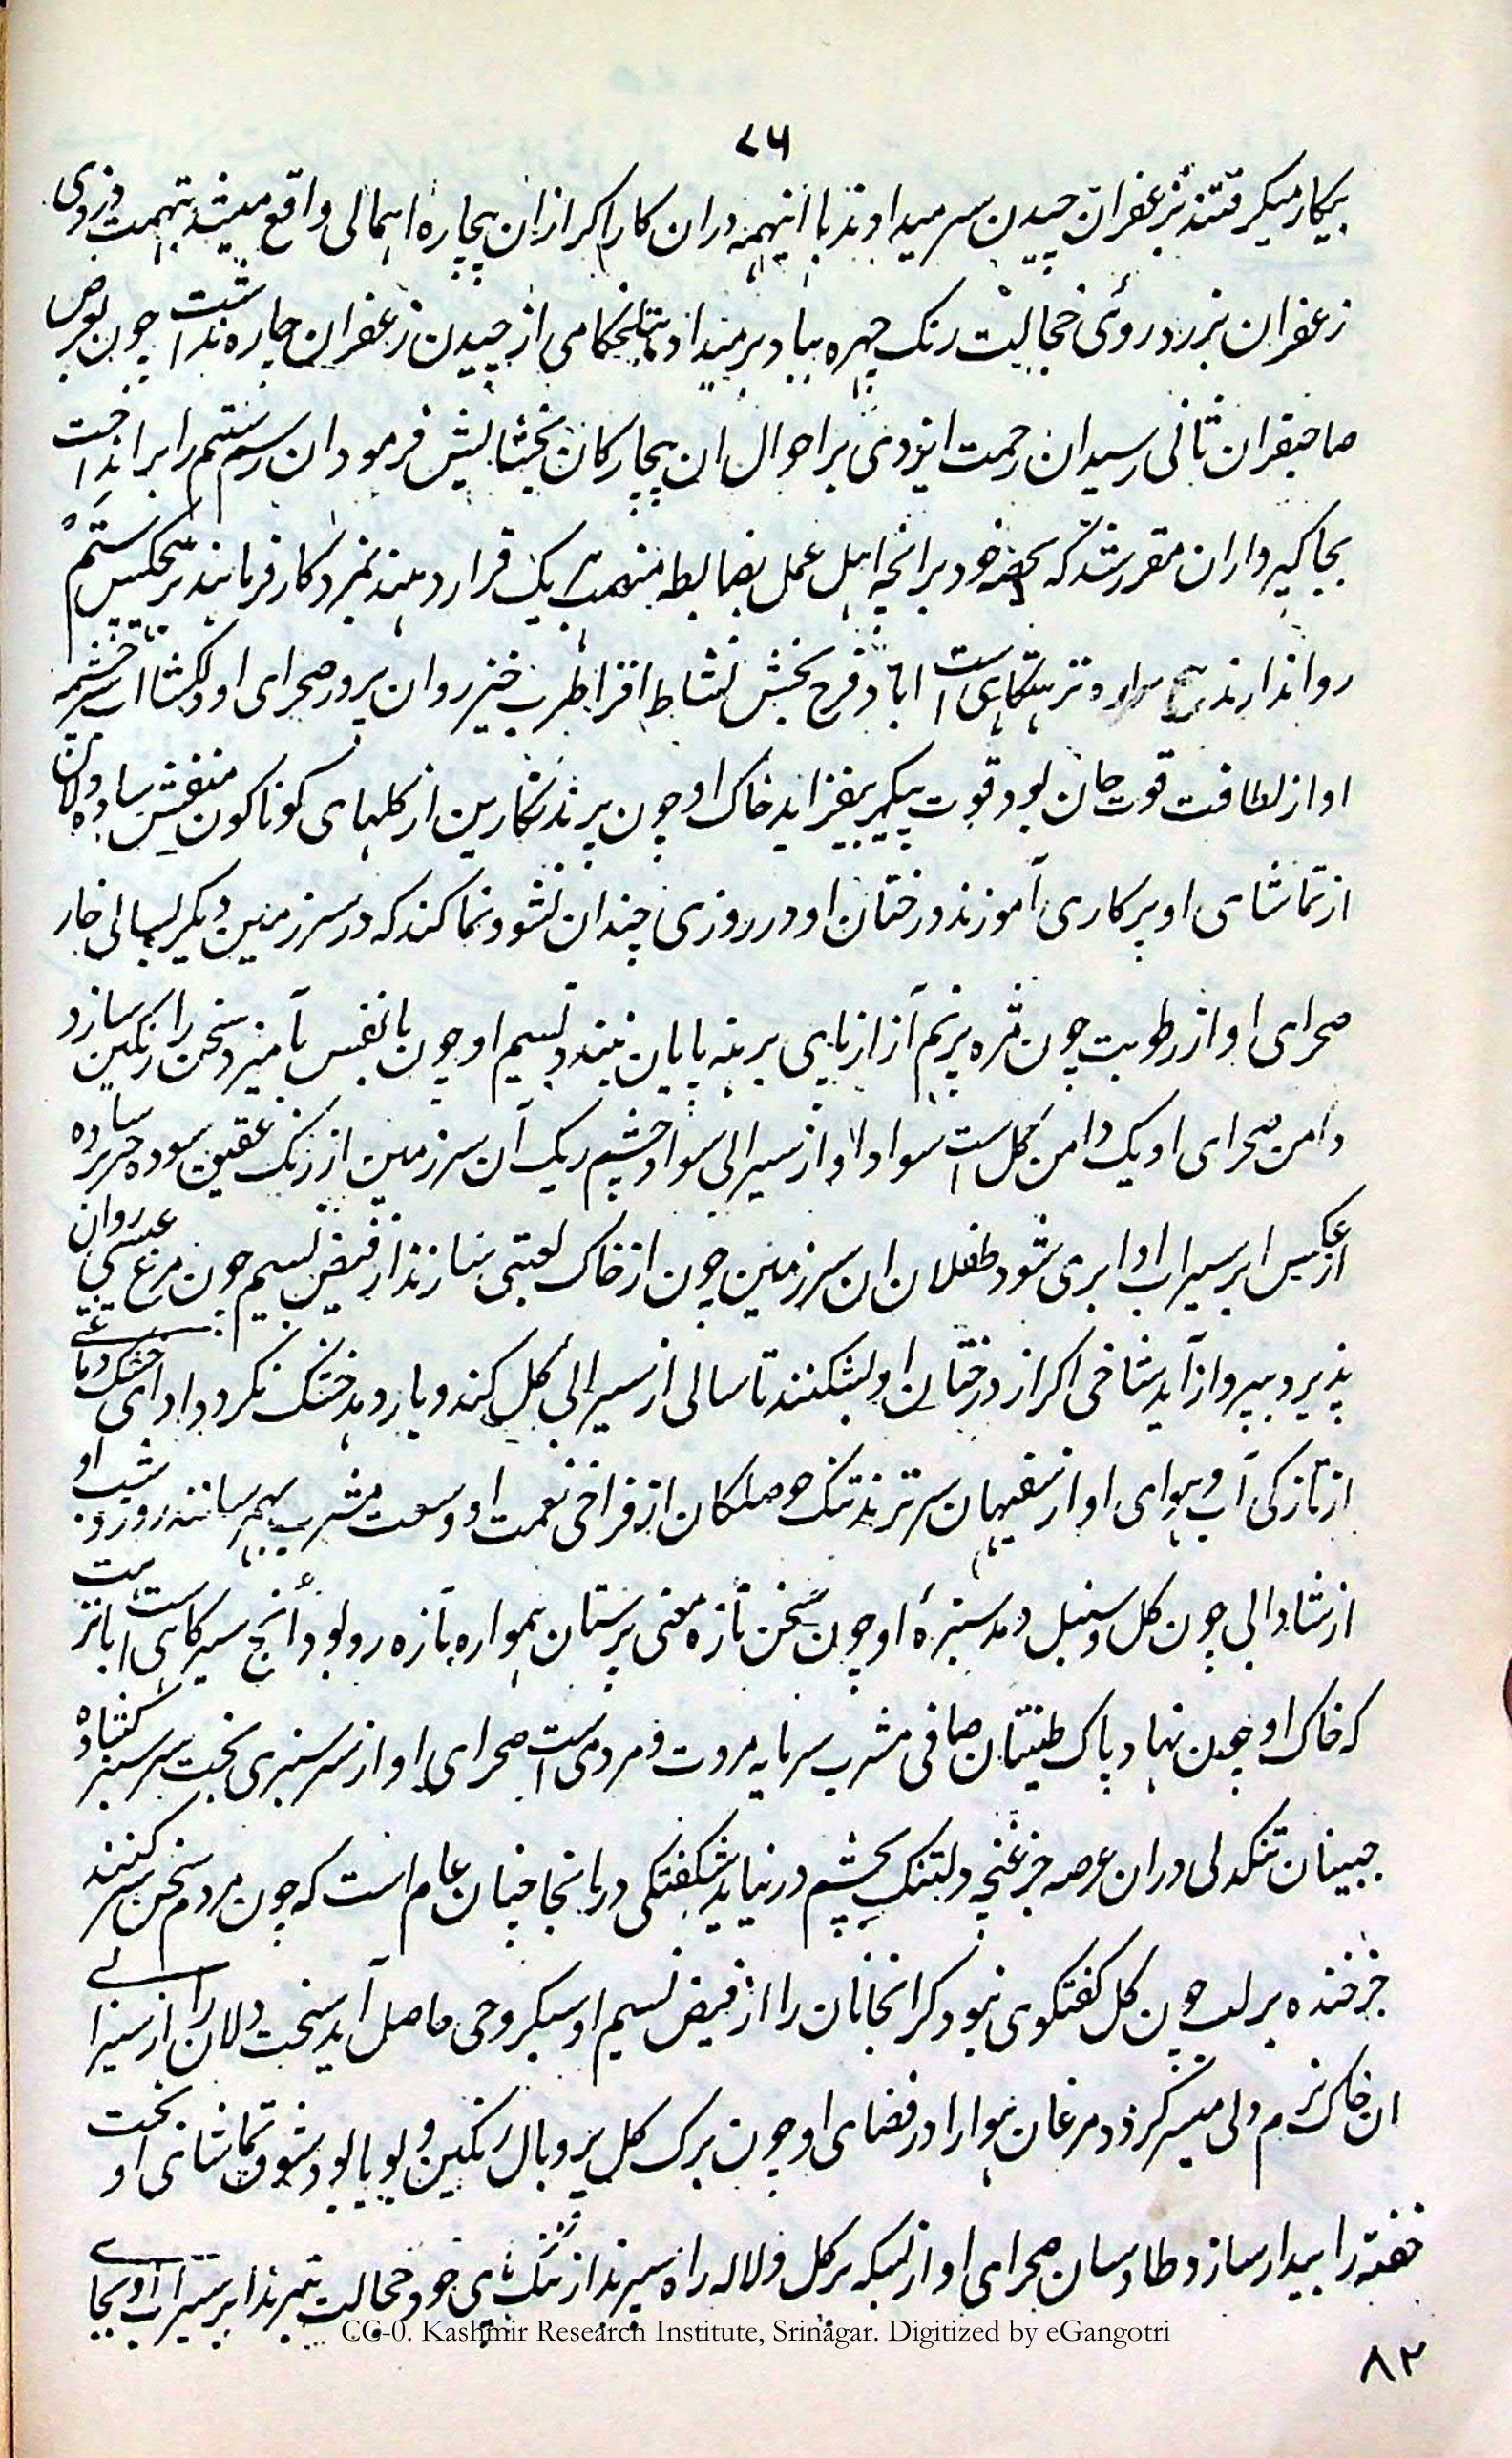 ۷۶
بیکار میکرفتند بزعفران چیدن سر میدادند با اینهمه دران کار اکر ازان بیچاره اهمالی واقع میشد بتهمت دزدی
زعفران بزرد روئی خجالت رنک چهره بباد برمیداد بتلخکامی از چیدن زعفران چاره نداشت چون بعرض
صاحبقران ثانی رسید ان رحمت ایزدی بر احوال ان بیچارکان بخشایش فرمود ان رسم ستم را برانداخت
بجاکیرداران مقرر شد که بحصه خود برانچه اهل عمل بضابطه منصب هر یک قرار دهند بمزد کار فرمایند بر هیچکس ستم
روا ندارند تزهتکاهی است اباد فرح بخش نشاط افزا طرب خیز روان پرور صحرای او دلکشا است چشمه
او از لطافت قوت جان بود قوت پیکر بیفزاید خاک او چون پرند نکارین از کلهای کوناکون منقش ساده دلان
از تماشای او پرکاری آموزند درختان او در روزی چندان نشوونما کند که در سرزمین دیکر بسالی خار
صحرای او از رطوبت چون مژه پرنم آزار پای برهنه پایان نبیند نسیم او چون با نفس بامیزد سخن را رنکین سازد
دامن صحرای او یک دامن کل است سواد او از سیرابی سواد چشم ریک آن سرزمین از رنک عقیق سوده حریر ساده
از عکس ابر سیراب او ابری شود طفلان ان سرزمین چون از خاک لعبتی بسازند از فیض نسیم چون مرغ عیسی روان
پذیرد بپرواز آید شاخی اکر از درختان او بشکنند تا سالی از سیرابی کل کند و بار دهد خشک نکردد ادای خشک دماغی
از تازکی آب و هوای او از سفیهان سر نزند تنک حوصلکان از فراخی نعمت او وسعت مشرب بهم رسانند روز و شب او
از شادابی چون کل و سنبل دمد سبزهٔ او چون سخن تازه معنی پرستان همواره تازه رو بود انج سیرکاهی است بانزهت
که خاک او چون نهاد پاک طینتان صافی مشرب سرمایه مروت و مردمی است صحرای او از سرسبزی بخت سرسبز کشاده
جبینان تنکدلی دران عرصه جز غنچه دلتنک بچشم در نیاید شکفتکی درانجا چنان عام است که چون مردم سخن سر کنند
جز خنده بر لب چون کل کفتکوی نبود کرانجانان را از فیض نسیم او سبکروحی حاصل آید سخت دلان را از سیرابی
ان خاک نرم دلی میسر کردد مرغان هوا را در فضای او چون برک کل پر و بال رنکین و بویا بود شوق تماشای او بخت
خفته را بیدار سازد طاوسان صحرای او از بسکه بر کل و لاله راه سپرند از رنک پای خود خجالت نبرند ابر سیراب او بجای
CC-0. Kashmir Research Institute, Srinagar. Digitized by eGangotri
۸۲